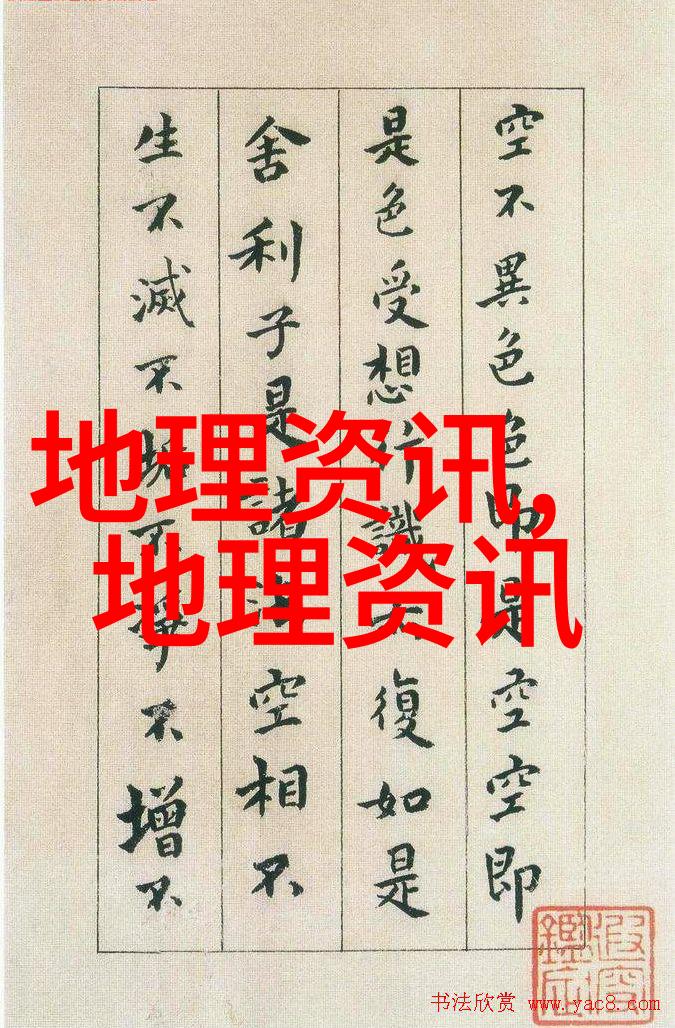 空不異色色即是空空即
是色受想行識亦復如是
舍利子是諸法空相不
生不滅不垢不淨不增不
地理资讯,
地理资讯
书法欣赏 www.yac8.com